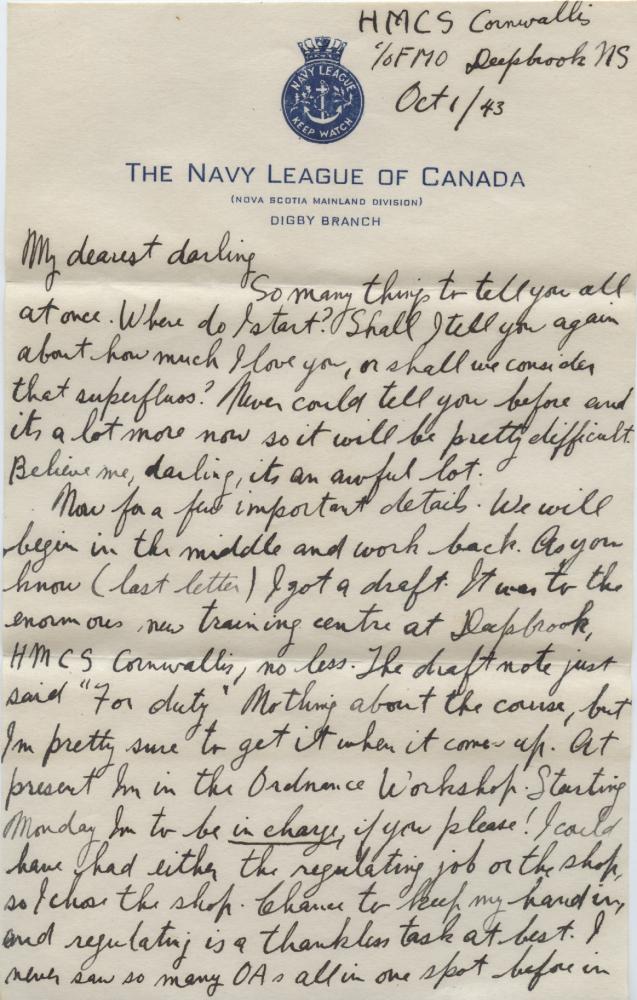 HMCS Cornwallis
c/o FMO Deepbrook NS
Oct 1/43
NAVY LEAGUE
KEEP WATCH
THE NAVY LEAGUE OF CANADA
(NOVA SCOTIA MAINLAND DIVISION)
DIGBY BRANCH
My dearest darling
So many things to tell you all
at once. Where do I start? Shall I tell you again
about how much I love you, or shall we consider
that superfluos? Never could tell you before and
its a lot more now so it will be pretty difficult.
Believe me, darling, its an awful lot.
Now for a few important details. We will
begin in the middle and work back. As you
know (last letter) I got a draft. It was to the
enormous new training centre at Deepbrook,
HMCS Cornwallis, no less. The draft note just
said "For duty" Nothing about the course, but
Im pretty sure to get it when it comes up. At
present Im in the Ordnance Workshop. Starting
Monday Im to be in charge, if you please! I could
have had either the regulating job or the shop,
so I chose the shop. Chance to keep my hand in,
and regulating is a thankless task at best. I
never saw so many OAs all in one spot before in